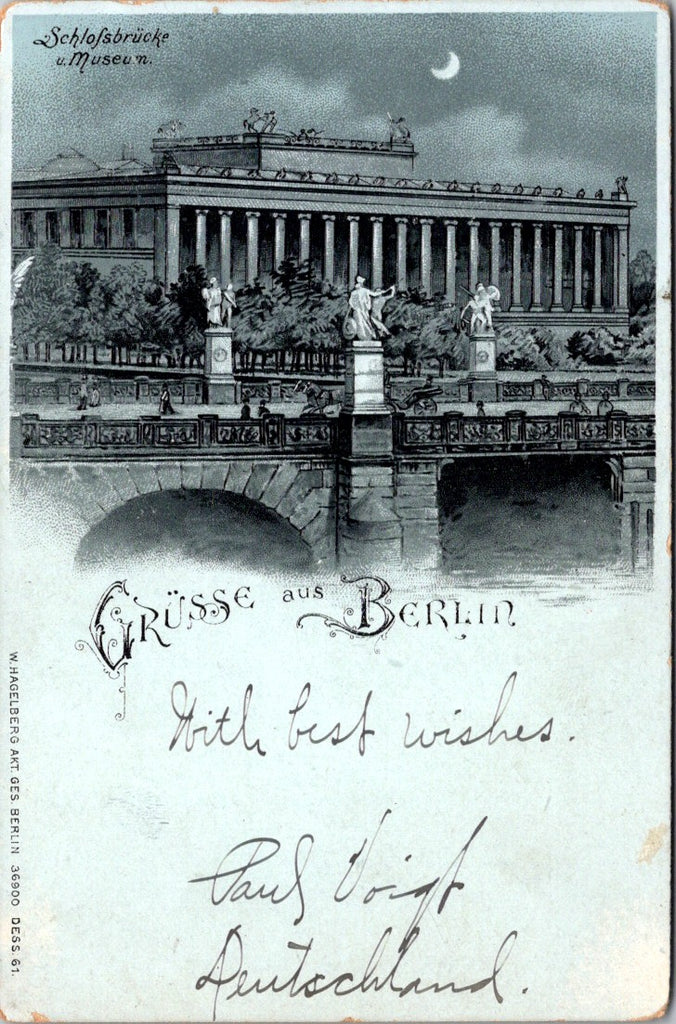 Schloſsbrücke
u. Museum.
GRÜSSE aus BERLIN
With best wishes.
Paul Voigt
Deutschland.
W. HAGELBERG AKT. GES. BERLIN 36900 DESS. 61.